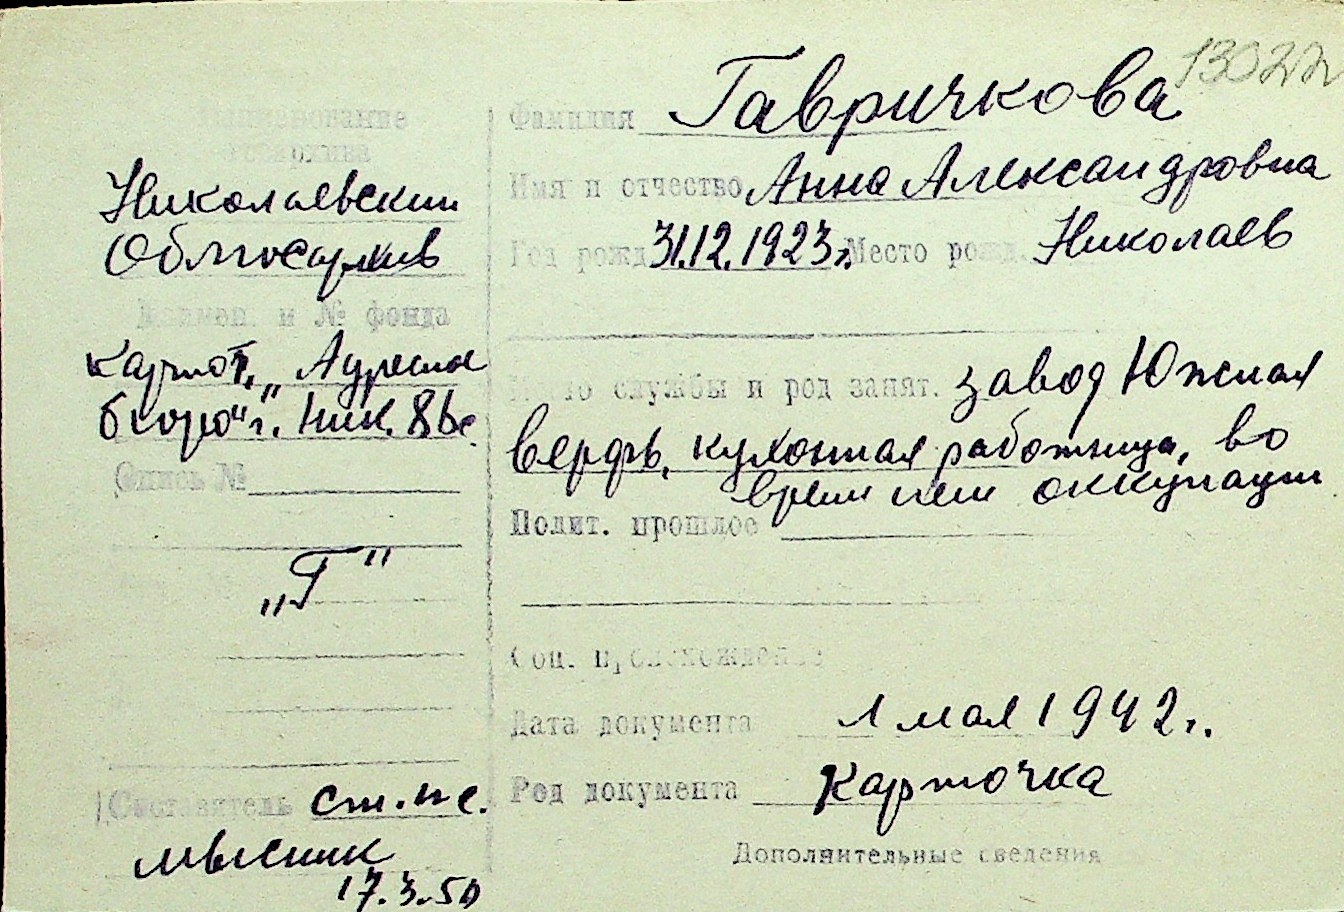 13022
Фамилия Гавричкова
Имя и отчество Анна Александровна
Год рожд. 31.12.1923 г. Место рожд. Николаев
Место службы и род занят. завод Южная
верфь, кухонная работница, во
время нем оккупации
Полит. прошлое
Соц. происхождение
Дата документа 1 мая 1942 г.
Род документа карточка
Дополнительные сведения
Наименование
госархива
Николаевский
Облгосархив
Наимен. и № фонда
картот. „Адресное
бюро" г. Ник.
Опись №
„Г"
Составитель ст. н. с.
17.3.50